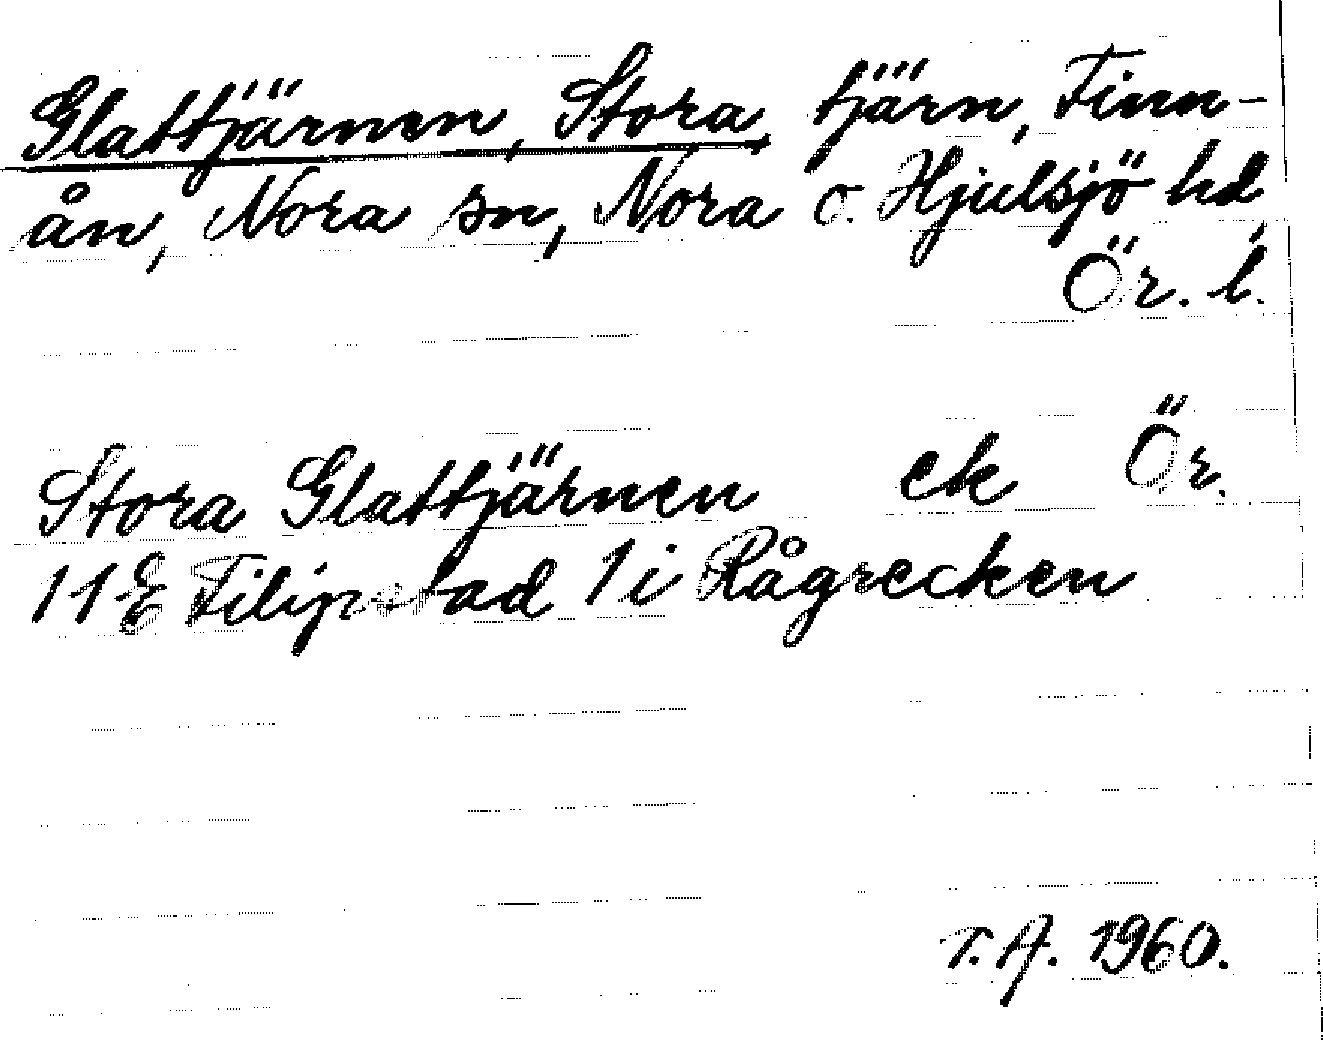 Glattjärnen, Stora, tjärn, Finn-
ån, Nora sn, Nora o. Hjulsjö hd,
Ör. l.
Stora Glattjärnen ek Ör.
11E Filipstad 1i Rågrecken
T.A. 1960.